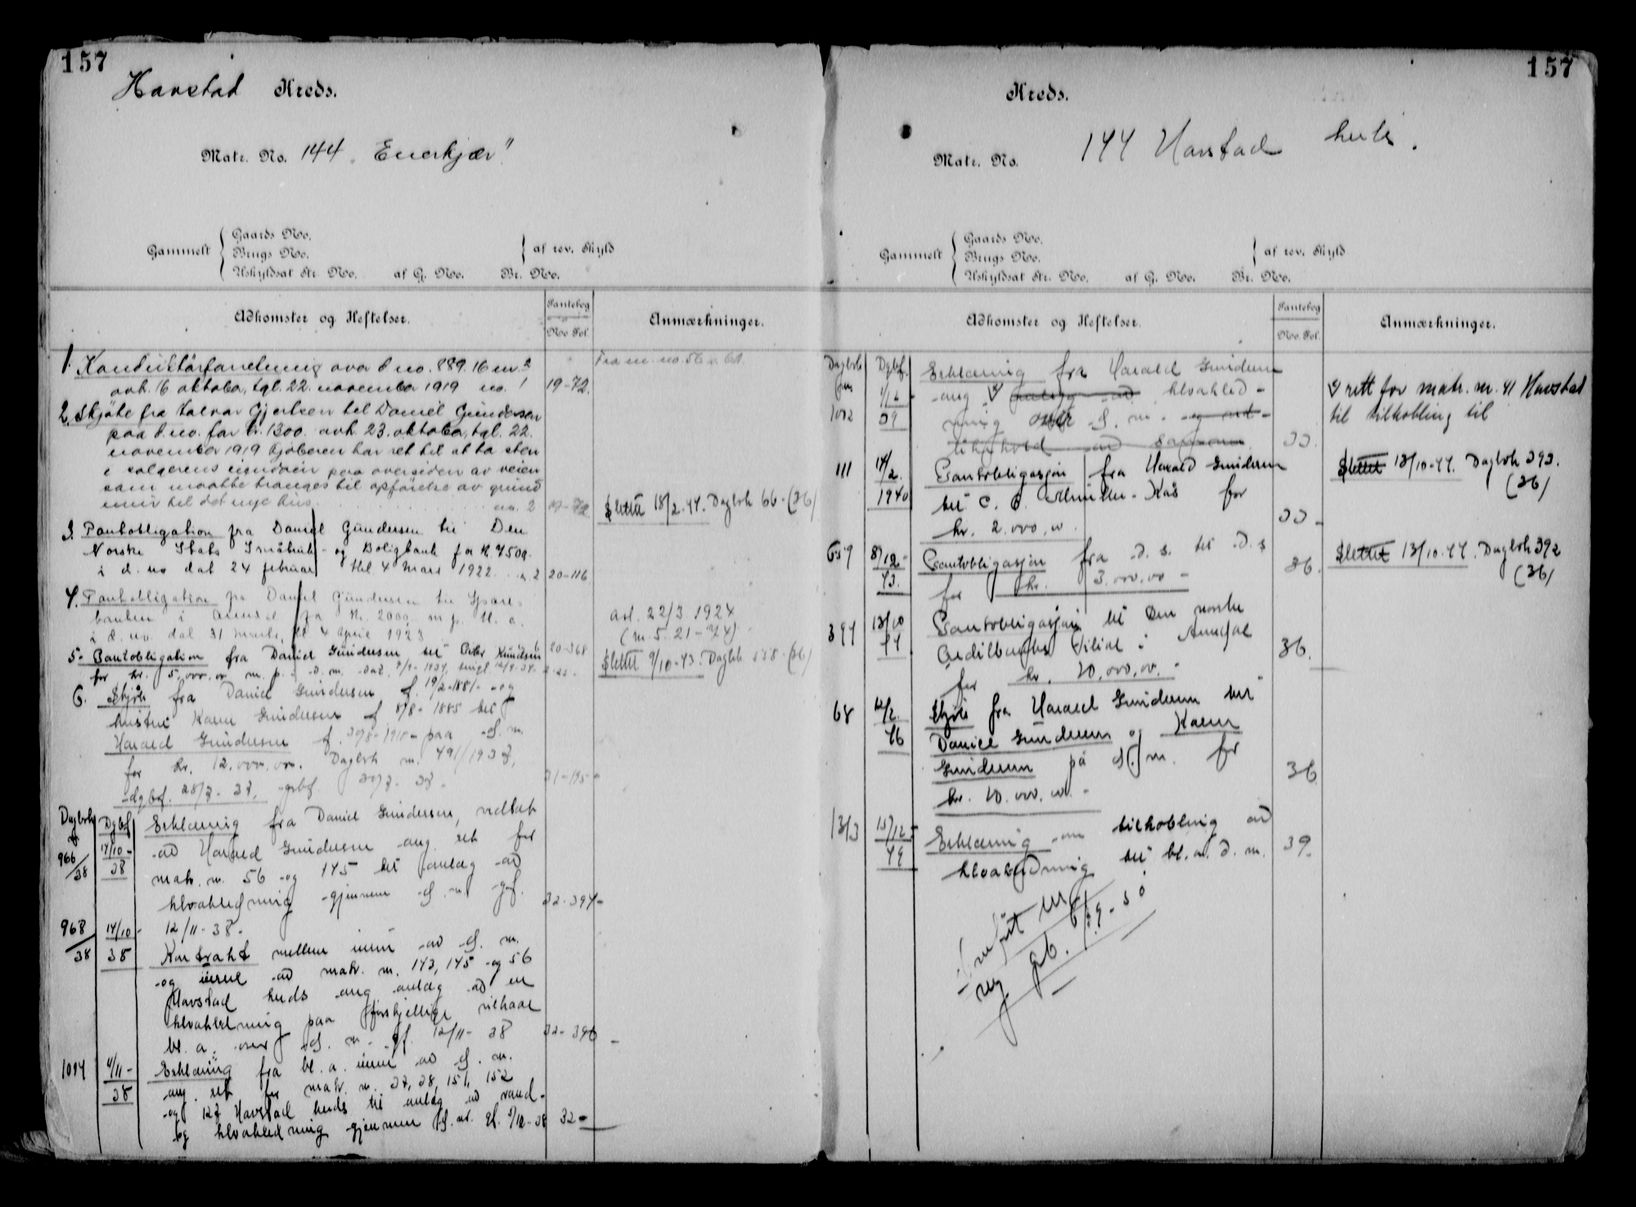 157
Havstad Kreds.
Matr. No. 144 „Enerkjær"
Gammelt
Gaards No.
Brugs No.
Uskyldsat Nr. No. af G. No. Br. No.
af rev. Skyld
Adkomster og Heftelser.
Pantebog
No. Fol.
Anmærkninger.
1. Konduktörforretning over d no. 889.16 m²
avh. 16 oktober, tgl. 22. november 1919 no. 1 19-72.
Fra m. no. 56
2. Skjöte fra Halvor Gjertsen til Daniel Gundersen
paa d. no. for kr. 1300. avh. 23. oktober, tgl. 22.
november 1919 Kjöberen har ret til at ta sten
i sælgerens eiendom paa oversiden av veien
som maatte trænges til opförelse av grund
mur til det nye hus. no. 2 19-72.
Slettet 18/2.44. Dagbok 66-(36)
3. Pantobligation fra Daniel Gundersen til Den
Norske Stats Småbruk- og Boligbank for kr 4500.
i d. no dat 24 februar tgl 4 mars 1922 .. 2 20-116
4. Pantobligation fra Daniel Gundersen til Spare-
banken i Arendal for kr. 2000 m. p. kl. a.
i d. no. dat 31 marts, tgl 4 april 1923 20-368
avl. 22/3 1924
(m. 5. 21-44)
5. Pantobligation fra Daniel Gundersen til Peder Knudsen
for kr. 5,000.00 m. p. i d. m. dat.
Slettet 9/10-43. Dagbok 538-(36)
6. Skjöte fra Daniel Gundersen f. 19/2-1881- og
hustru Karen Gundersen f 8/8-1885 til
Harald Gundersen f. 30/8-1910- paa d. m.
for kr. 12.000.00. Dagbok nr. 491/1937,
dgbf. 28/7-37, 31-195-
Dagbok
nr
Dgbf.
966/38
14/10-38
Erklæring fra Daniel Gundersen, vedtatt
av Harald Gundersen ang. rett for
matr. nr. 56 og 145 til anlæg av
kloakledning gjennem d. m. gbf.
12/11-38. 32-394-
968/38
14/10-38
Kontrakt mellem eieren av d. m.
og eierne av matr. nr. 143, 145 og 56
Havstad kreds ang anlæg av en
kloakledning paa forskjellige vilkaar
bl. a. over d. m. gbf. 12/11-38 32-396
1014
4/11-38
Erklæring fra bl. a. eieren av d. m.
ang. rett for matr. nr. 37, 38, 151, 152
og 127 Havstad kreds til anlæg av vand-
og kloakledning gjennem d. m. gbf. 32-
157
Kreds.
Matr. No. 144 Havstad krets.
Gammelt
Gaards No.
Brugs No.
Uskyldsat Nr. No. af G. No. Br. No.
af rev. Skyld
Adkomster og Heftelser.
Pantebog
No. Fol.
Anmærkninger.
Dagbok
nr
Dgbf.
1012
39
Erklæring fra Harald Gundersen
ang. kloakled-
ning over d. m. 33.
rett for matr. nr. 41 Havstad
til tilkobling til
111
14/2. 1940
Pantobligasjon fra Harald Gundersen
til kr. 2.000.00 33-
Slettet 13/10-44. Dagbok 393.
(36)
659
8/12-43.
Pantobligasjon fra d. s. til d. s
for kr. 3.000.00- 36.
Slettet 13/10-44. Dagbok 392
(36)
394
13/10 44
Pantobligasjon til Den norske
Creditbanks Filial i Arendal
for kr. 10.000.00.- 36.
68
12/2. 46
Skjöte fra Harald Gundersen til
Daniel Gundersen og Karen
Gundersen på d. m. for
kr. 10.000.00- 36
1313
15/12-49
Erklæring om tilkobling av
kloakledning til bl. a. d. m. 39.